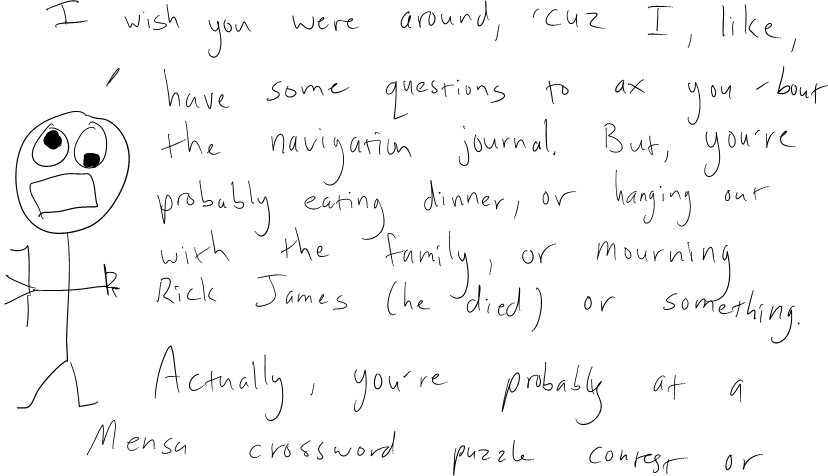 I wish you were around, 'cuz I, like,
have some questions to ax you 'bout
the navigation journal. But, you're
probably eating dinner, or hanging out
with the family, or mourning
Rick James (he died) or something.
Actually, you're probably at a
Mensa crossword puzzle contest or